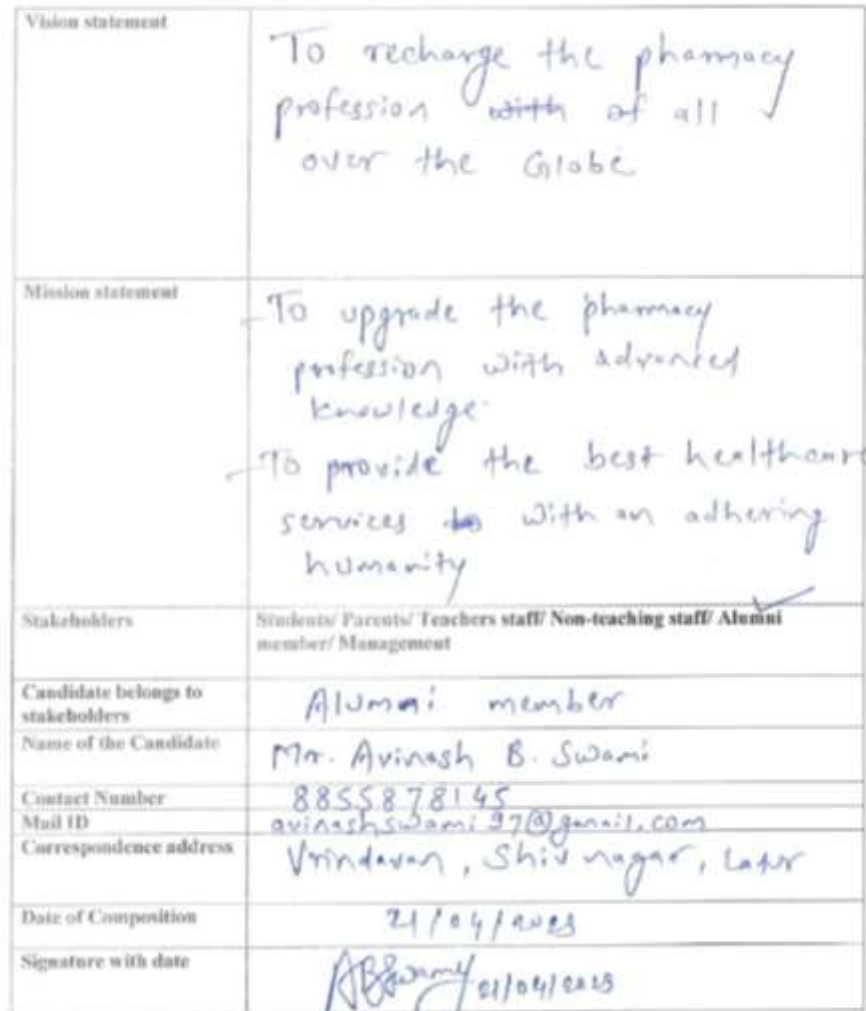 Vision statement
To recharge the pharmacy
profession with of all
over the Globe
Mission statement
- To upgrade the pharmacy
profession with advanced
knowledge.
- To provide the best healthcare
services to with an adhering
humanity
Stakeholders
Students/ Parents/ Teachers staff/ Non-teaching staff/ Alumni
member/ Management
Candidate belongs to
stakeholders
Alumni member
Name of the Candidate
Mr. Avinash B. Swami
Contact Number
8855878145
Mail ID
avinashswami97@gmail.com
Correspondence address
Vrindavan, Shiv nagar, Latur
Date of Composition
21/04/2023
Signature with date
ABSwamy 21/04/2023